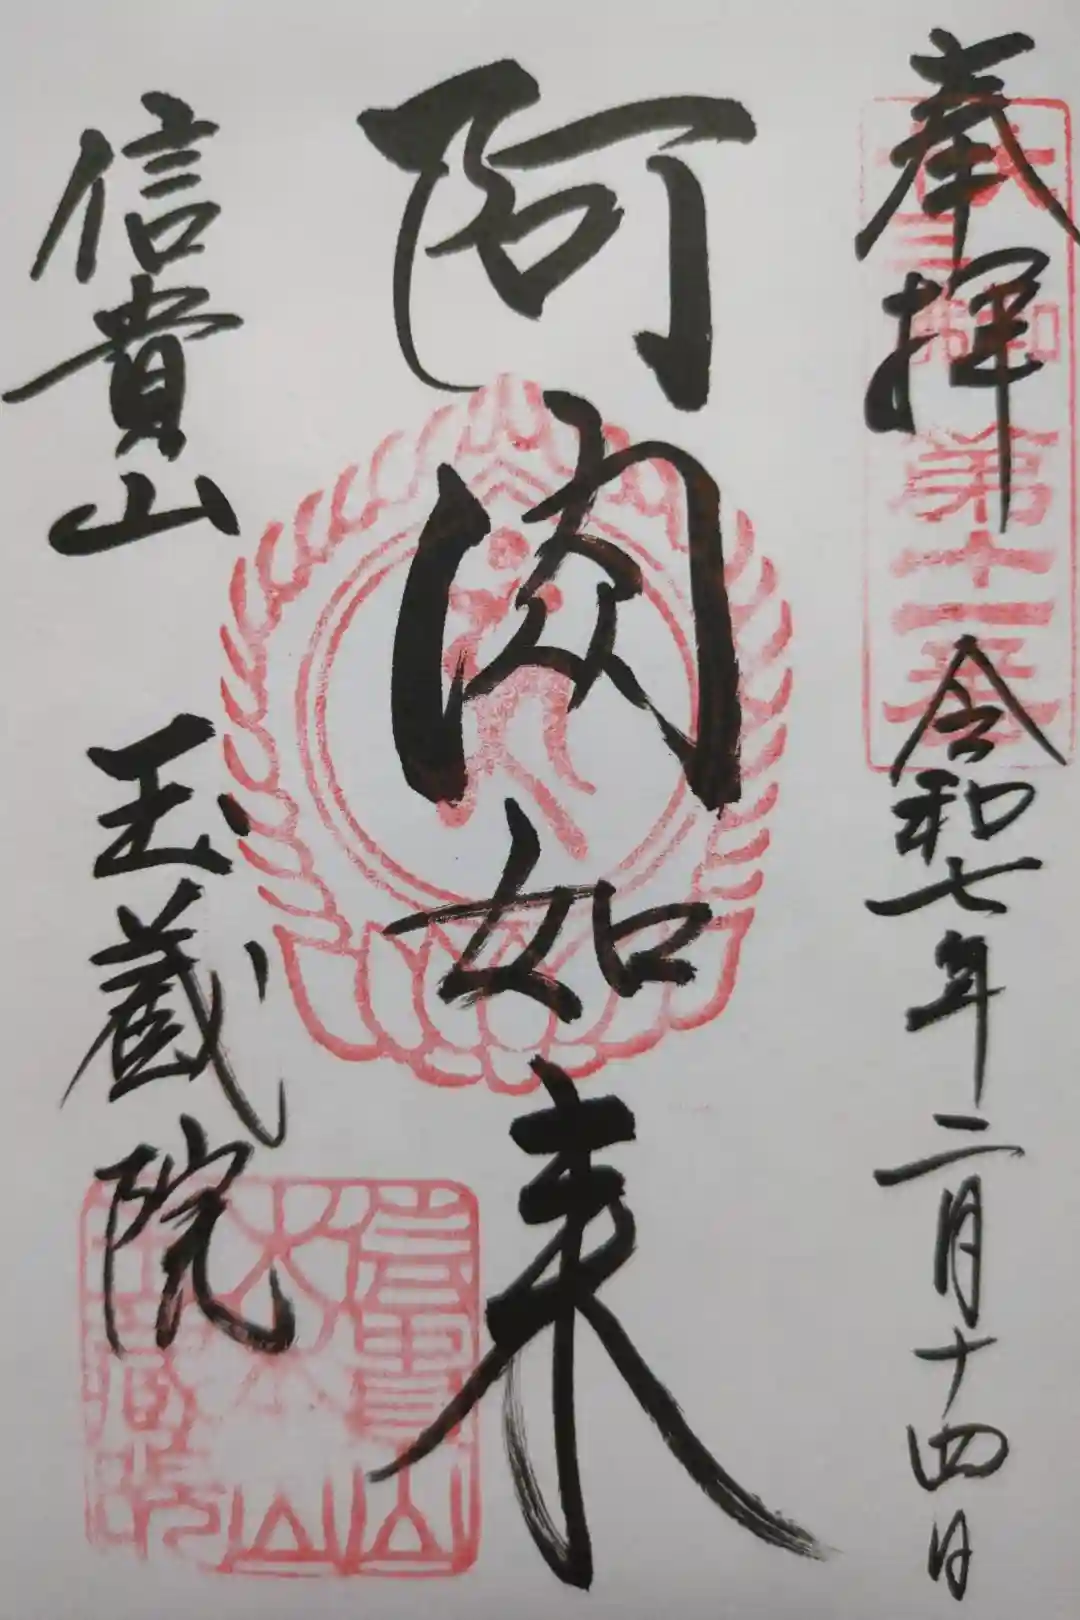 奉拝
令和七年二月十四日
第十一番
阿閦如来
信貴山
玉蔵院
信貴山
大本山
玉蔵院